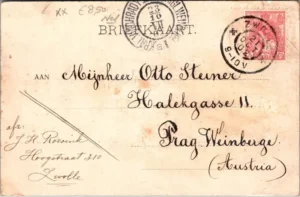 xx €8,50
BRIEFKAART.
AAN Mejnheer Otto Steiner
Halekgasse 11.
Prag Weinberge
(Austria)
afz:
J. H. Roesink
Hoogstraat
Zwolle